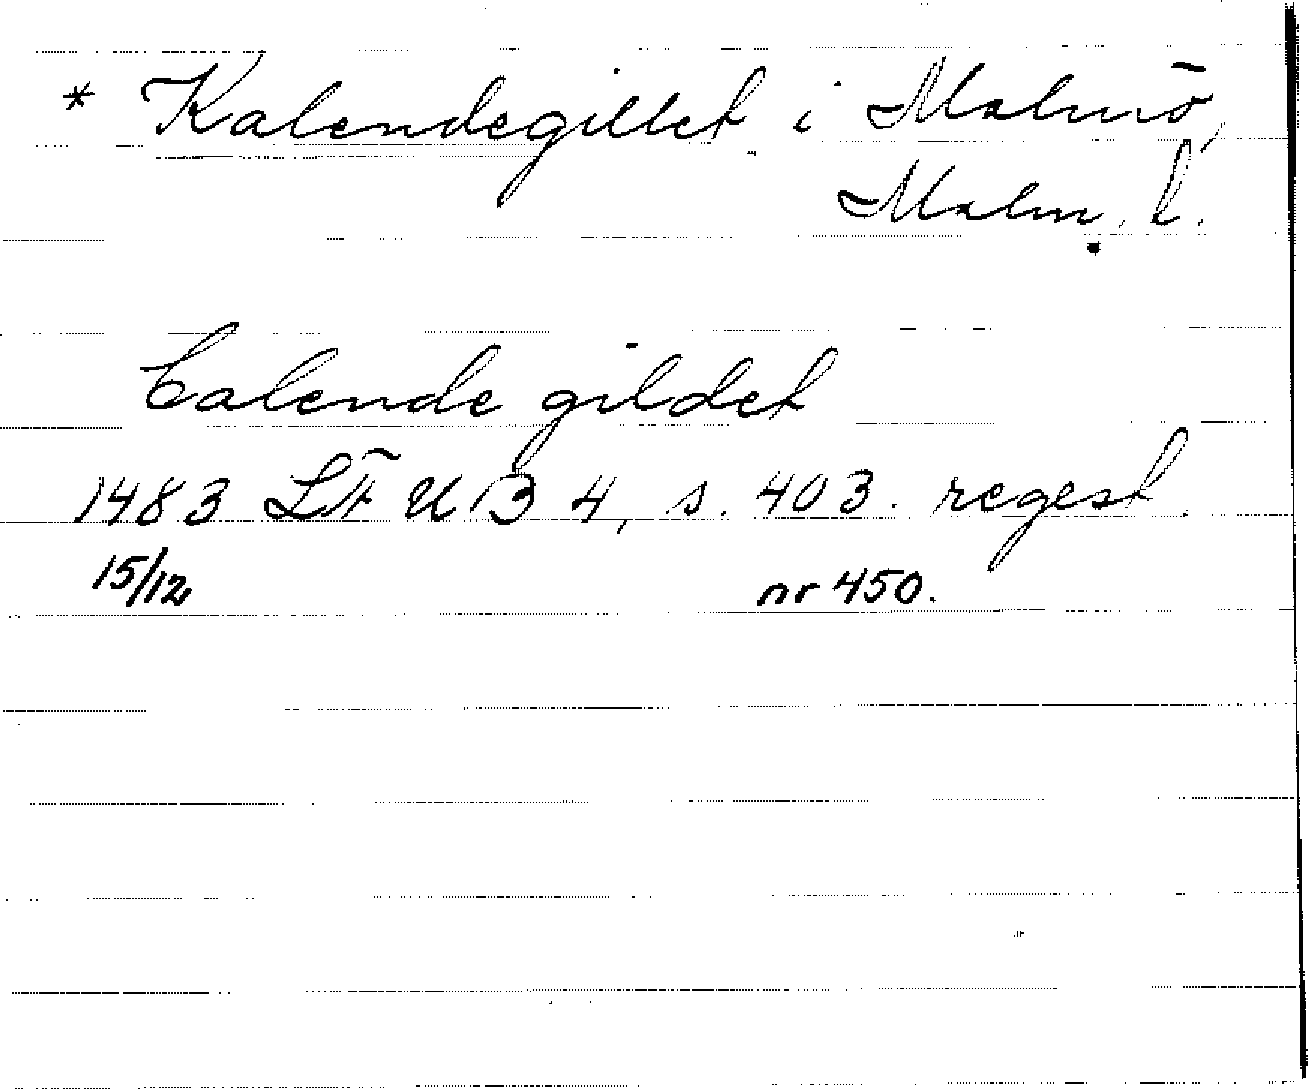 * Kalendegillet i Malmö,
Malm. l.
Calende gildet
1483 LFUB 4, s. 403. regest
15/12 nr 450.